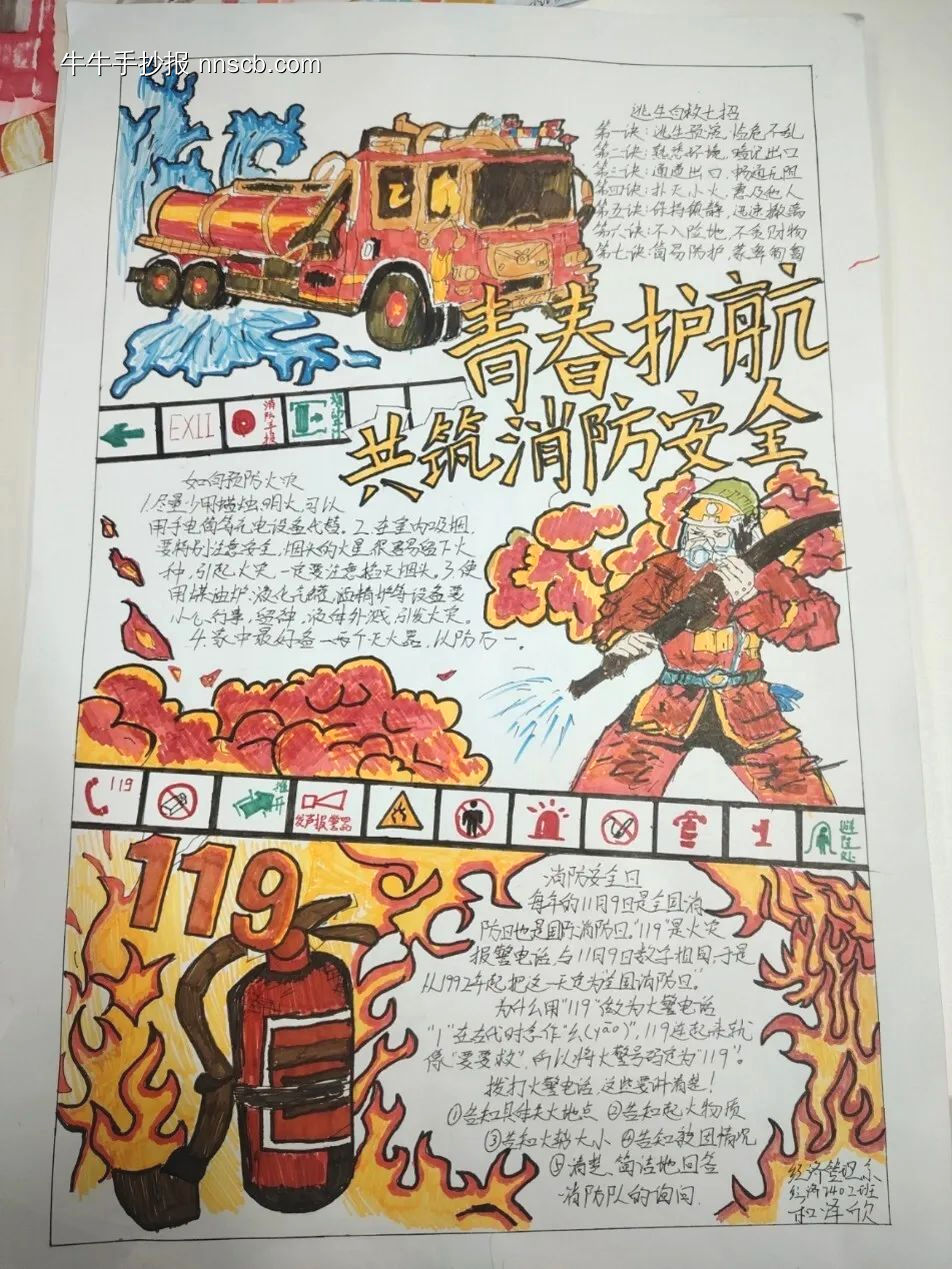 牛牛手抄报 nnscb.com
逃生自救七招
第一诀:逃生预演,临危不乱
第二诀:熟悉环境,暗记出口
第三诀:通道出口,畅通无阻
第四诀:扑灭小火,惠及他人
第五诀:保持镇静,迅速撤离
第六诀:不入险地,不贪财物
第七诀:简易防护,蒙鼻匍匐
青春护航
共筑消防安全
EXIT
消防手报
如何预防火灾
1.尽量少用蜡烛,明火,可以
用手电筒等充电设备代替。2.在室内吸烟
要特别注意安全,烟头的火星很容易留下火
种,引起火灾,一定要注意掐灭烟头,3.使
用煤油炉、液化气罐、酒精炉等设备要
小心行事,留神,液体外溅,引发火灾。
4.家中最好备一两个灭火器,以防万一.
119
推开
发声报警器
避险处
119
消防安全日
每年的11月9日是全国消
防日也是国际消防日."119"是火灾
报警电话,与11月9日数字相同,于是
从1992年起把这一天定为"全国消防日"
为什么用"119"做为火警电话
"1"在古代时念作"幺(yāo)",119连起来就
像"要要救",所以将火警号码定为"119"。
拨打火警电话,这些要讲清楚!
①告知具体失火地点 ②告知起火物质
③告知火势大小 ④告知被困情况
⑤清楚、简洁地回答
消防队的询问.
经济管理系
经济2402班
和泽欣